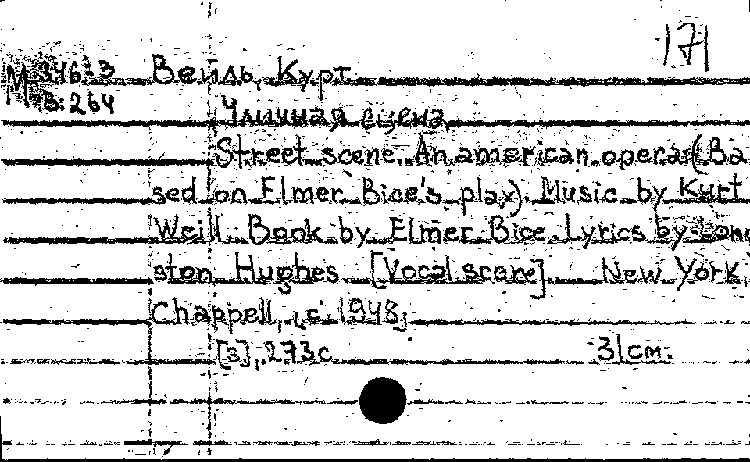 171
М 346-3 Вейль, Курт
В: 264
Уличная сцена.
Street scene. An american opera (Ba
sed on Elmer Bice's play). Music by Kurt
Weill. Book by Elmer Bice. Lyrics by Lang
ston Hughes [Vocal score]. New York,
Chappell, [c. 1948]
[3], 273с. 31см.